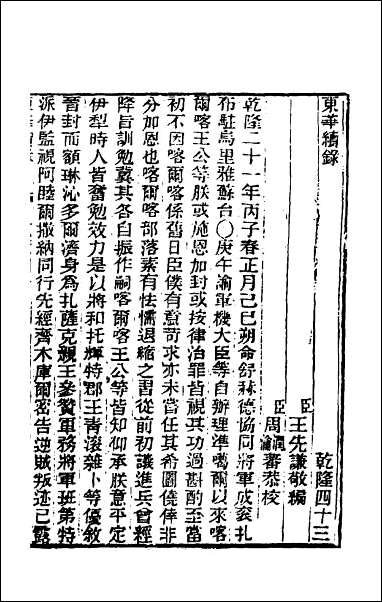 東華續錄
乾隆四十三
臣王先謙敬編
臣周潤蕃周瀹蕃恭校
乾隆二十一年丙子春正月己巳朔命舒赫德協同將軍成袞扎
布駐烏里雅蘇台〇庚午諭軍機大臣等自辦理準噶爾以來喀
爾喀王公等朕或施恩加封或按律治罪皆視其功過斟酌至當
初不因喀爾喀係舊日臣僕有意苛求亦未嘗任其希圖僥倖非
分加恩也喀爾喀部落素有怯懦退縮之習從前初議進兵曾經
降旨訓勉冀其各自振作嗣喀爾喀王公等皆知仰承朕意平定
伊犁時人皆奮勉效力是以將和托輝特郡王青滾雜卜等優敘
晉封而額琳沁多爾濟身為扎薩克親王參贊軍務將軍班第特
派伊監視阿睦爾撒納同行先經齊木庫爾密告逆賊叛迹已露